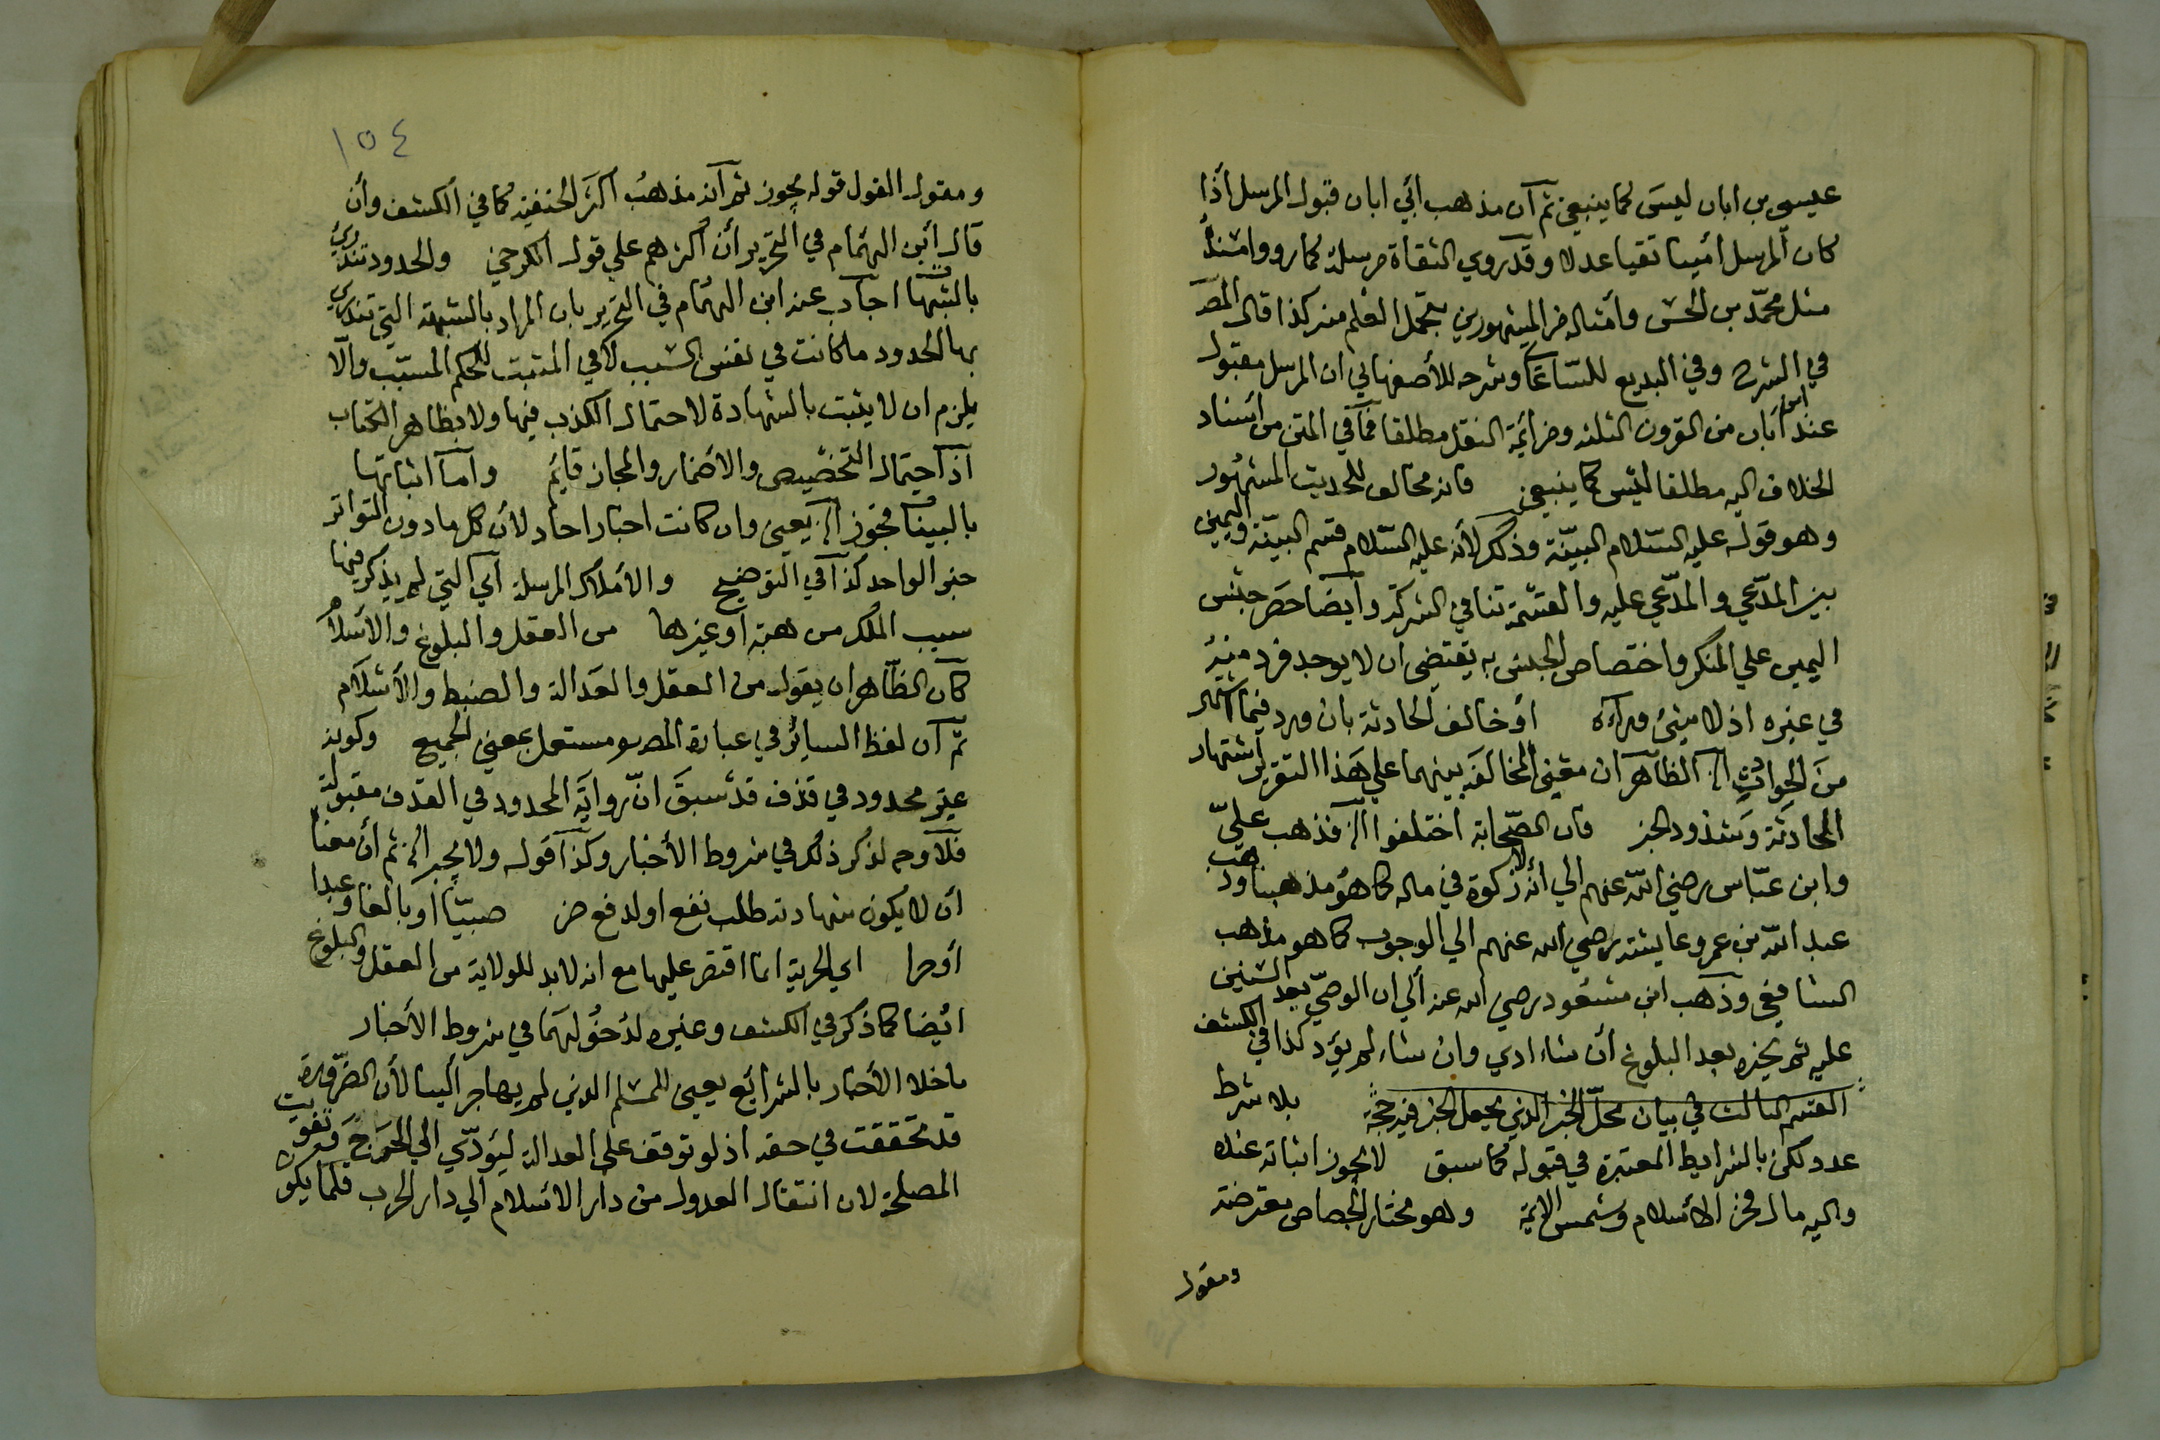 عيسى بن ابان ليس كما ينبغي ثم ان مذهب ابي ابان قبول المرسل اذا
كان المرسل امينا تقيا عدلا وقد روي الثقاة مرسله كما رووا مسنده
مثل محمد بن الحسن وامثاله من المشهورين بتحمل العلم منه كذا قال المص
في الشرح وفي البديع للساعاتي وشرحه للأصفهاني ان المرسل مقبول
عند ابن ابان من القرون الثلثه ومن ائمة النقل مطلقا فما في المتن من اسناد
الخلاف اليه مطلقا ليس كما ينبغي فانه مخالف للحديث المشهور
وهو قوله عليه السلام البينة وذلك لأنه عليه السلام قسم البينة واليمين
بين المدعي والمدعي عليه والقسمة تنافي الشركة وأيضا حصر جنس
اليمين علي المنكر واختصاص الجنس به يقتضي ان لا يوجد فرد منه
في غيره اذ لا شيئ وراءه أو خالف الحادثة بان ورد فيما اشتهر
من الحوادث الخ الظاهر ان معني المخالفة بينهما علي هذا التقرير اشتهار
الحادثة وشذوذ الخبر فان الصحابة اختلفوا الخ فذهب علي
وابن عباس رضي الله عنهم الي انه لا زكوة في ماله كما هو مذهبنا وذهب
عبد الله بن عمر وعايشة رضي الله عنهم الي الوجوب كما هو مذهب
الشافعي وذهب ابن مسعود رضي الله عنه ألي ان الوصي يعد السنين
عليه ثم يخبره بعد البلوغ أن شاء ادي وان شاء لم يؤد كذا في الكشف
القسم الثالث في بيان محل الخبر الذي يجعل الخبر فيه حجة بلا شرط
عدد لكن بالشرايط المعتبرة في قبوله كما سبق لا يجوز اثباته عنده
واليه مال فخر الاسلام وشمس الايمة وهو مختار الجصاص معترضة
ومقول
١٥٤
ومقول القول قوله يجوز ثم انه مذهب اكثر الحنفيه كما في الكشف وأن
قال أبن الهمام في التحرير أن أكثرهم علي قول الكرخي والحدود تندري
بالشبهات اجاب عنه ابن الهمام في التحرير بان المراد بالشبهة التي تندري
بها الحدود ما كانت في نفس السبب لا في المثبت للحكم المسبب والا
يلزم ان لا يثبت بالشهادة لاحتمال الكذب فيها ولا بظاهر الكتاب
اذ احتمال التخصيص والاضمار والمجاز قايم واما اثباتها
بالبينات فجوز الخ يعني وان كانت اخبار احاد لأن كل ما دون التواتر
خبر الواحد كذا في التوضيح والأملاك المرسلة أي التي لم يذكر فيها
سبب الملك من هبة أو غيرها من العقل والبلوغ والاسلام
كان الظاهر ان يقول من العقل والعدالة والضبط والأسلام
ثم ان لفظ الساير في عبارة المص مستعمل بمعني الجميع وكونه
غير محدود في قذف قد سبق ان رواية المحدود في القذف مقبولة
فلا وجه لذكر ذلك في شروط الأخبار وكذا قوله ولا يجبر الخ ثم أن معناه
أن لا يكون شهادته طلب نفع او لدفع ضر صبيا او بالغا عبدا
أو حرا اي الحرية انما اقتصر عليها مع انه لا بد للولاية من العقل والبلوغ
ايضا كما ذكر في الكشف وغيره لدخولهما في شروط الأخبار
ما خلا الأخبار بالشرائع يعني للمسلم الذي لم يهاجر ألينا لأن الضرورة
قد تحققت في حقه اذ لو توقف علي العدالة ليؤدي الي الحرج وتفويت
المصلحة لان انتقال العدول من دار الاسلام الي دار الحرب قلما يكون